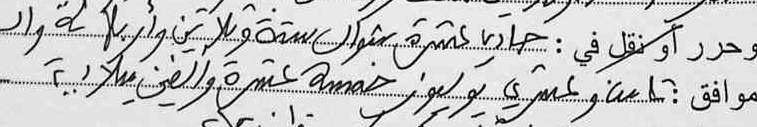 وحرر أو نقل في : حادي عشرة شوال ستة وثلاثين وأربعمائة وألف
موافق : ثامن وعشري يوليوز خمسة عشرة وألفين ميلادية